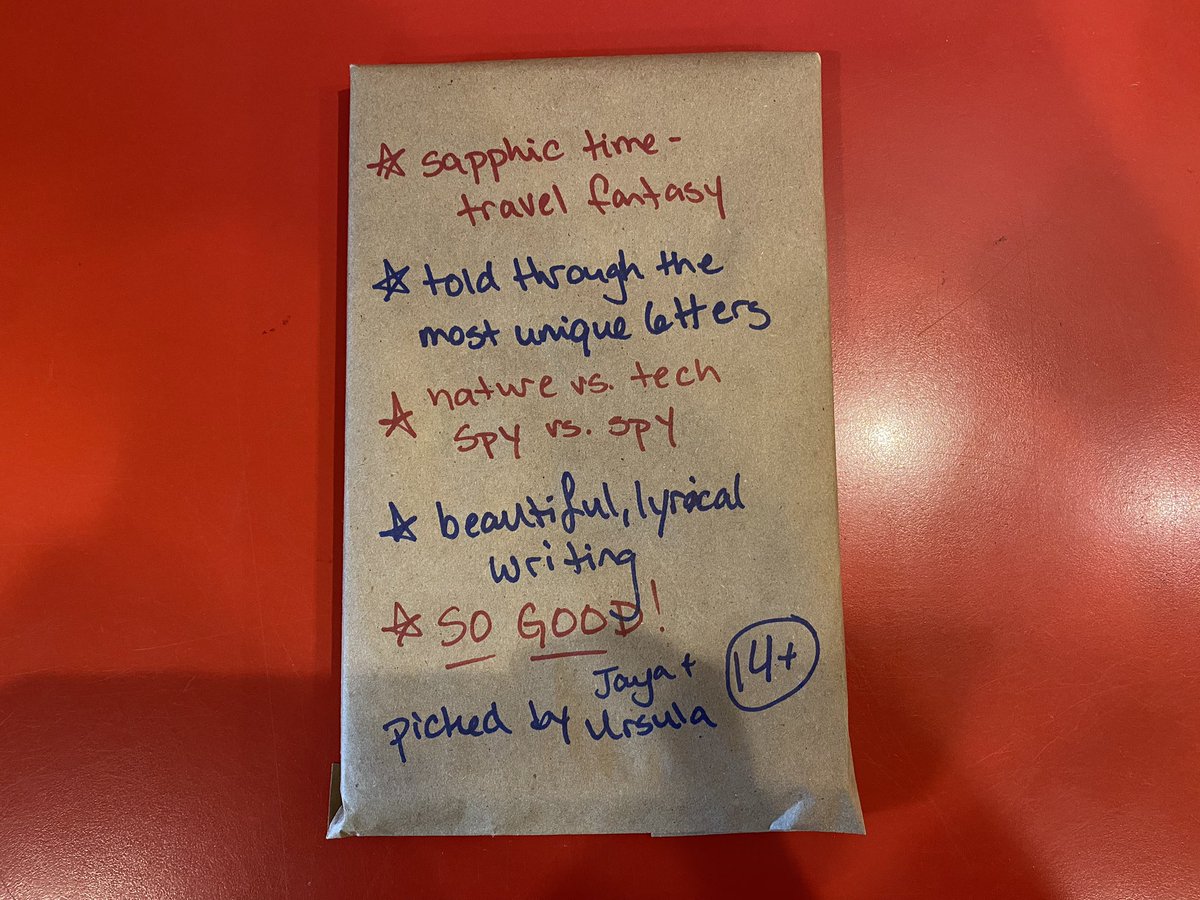 ☆ sapphic time-
travel fantasy
☆ told through the
most unique letters
☆ nature vs. tech
spy vs. spy
☆ beautiful, lyrical
writing
☆ SO GOOD!
Jaya +
picked by Ursula
14+